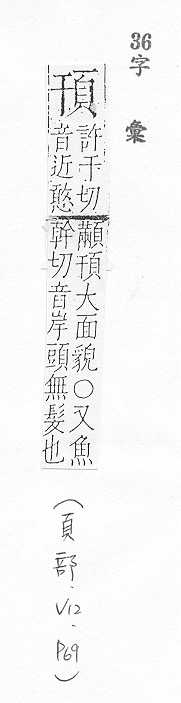 36字彙
頇
許干切
音近憨
顢頇大面貌○又魚
幹切音岸頭無髮也
(頁部.V12.P69)